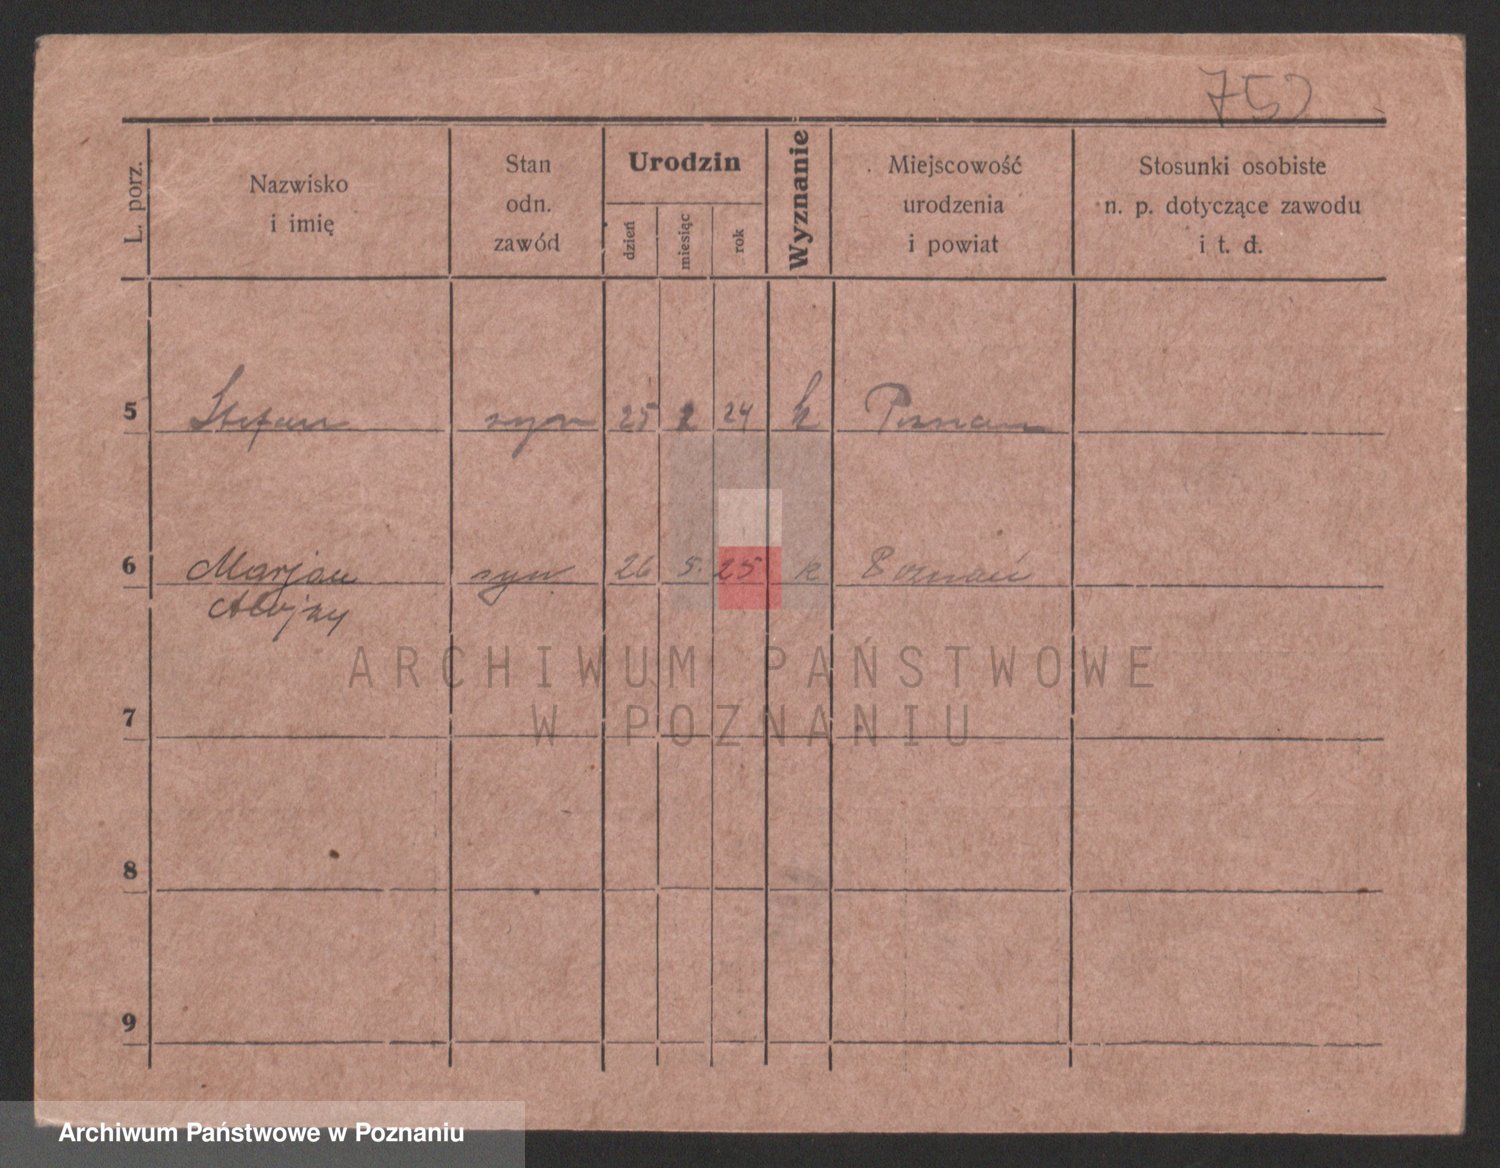 752
L. porz.
Nazwisko
i imię
Stan
odn.
zawód
Urodzin
dzień
miesiąc
rok
Wyznanie
Miejscowość
urodzenia
i powiat
Stosunki osobiste
n. p. dotyczące zawodu
i t. d.
5 Stefan syn 25 2 24 k Poznan
6 Marjan syn 26 5. 25 k Poznań
Alojzy
ARCHIWUM PAŃSTWOWE
W POZNANIU
7
8
9
Archiwum Państwowe w Poznaniu